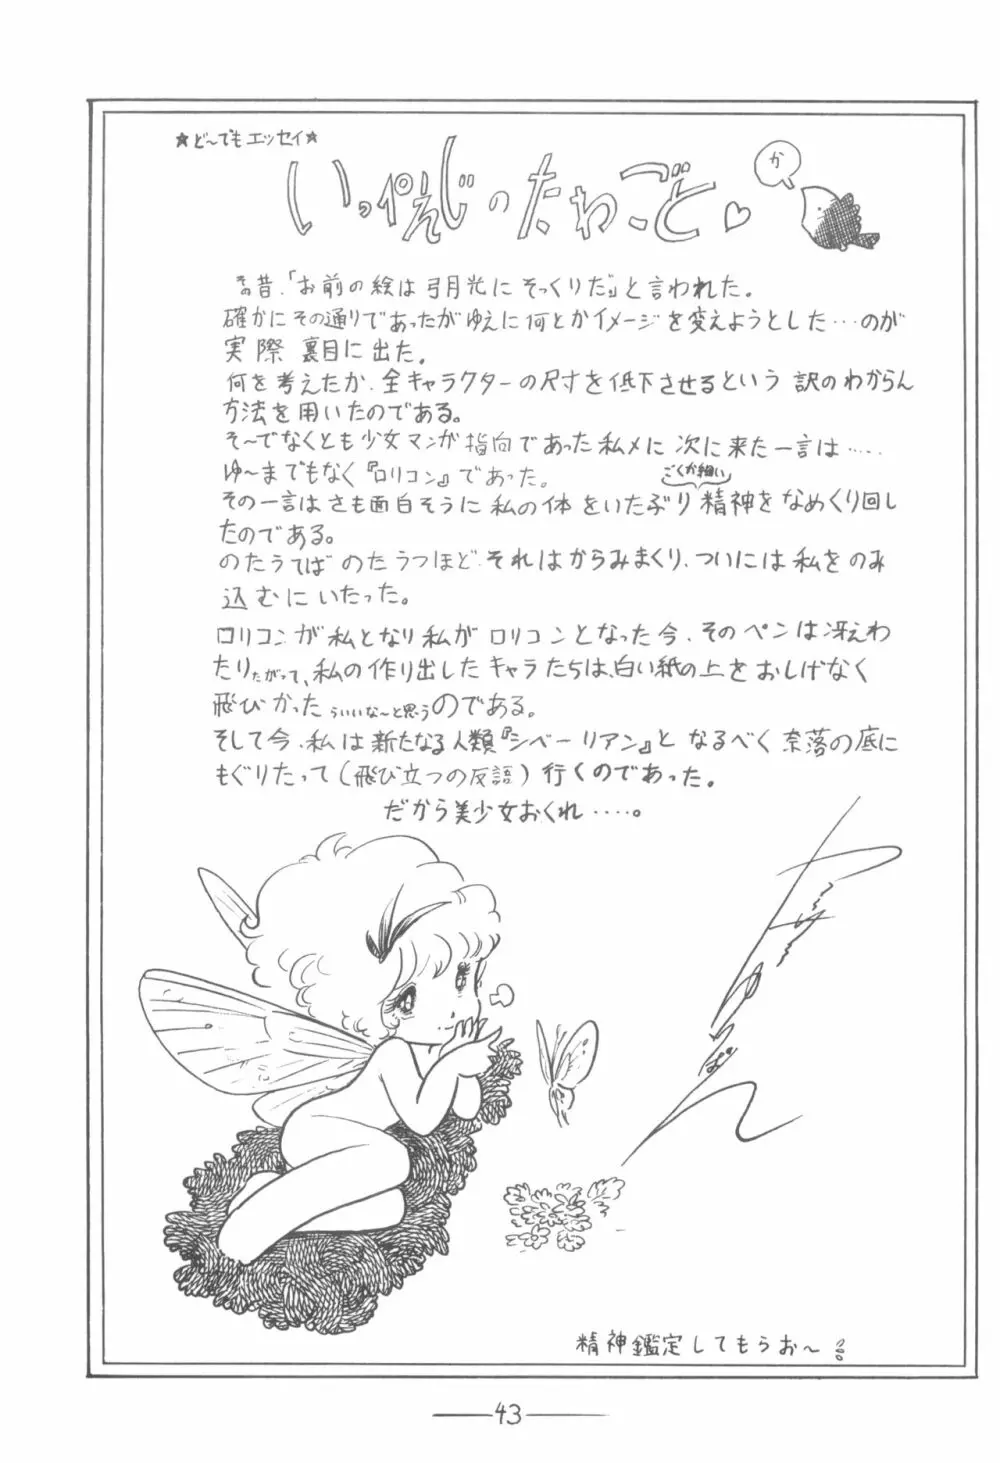 ★ど〜でもエッセイ★
いっぺんじのたわごと♡
か
その昔、「お前の絵は弓月光にそっくりだ」と言われた。
確かにその通りであったがゆえに何とかイメージを変えようとした…のが
実際裏目に出た。
何を考えたか、全キャラクターの尺寸を低下させるという訳のわからん
方法を用いたのである。
そ〜でなくとも少女マンガ指向であった私メに次に来た一言は……
ゆ〜までもなく『ロリコン』であった。
ごくか細い
その一言はさも面白そうに私の体をいたぶり精神をなめくり回し
たのである。
のたうてばのたうつほど、それはからみまくり、ついには私をのみ
込むにいたった。
ロリコンが私となり私がロリコンとなった今、そのペンは冴えわ
たりたがって、私の作り出したキャラたちは、白い紙の上をおしげなく
飛びかったらいいな〜と思うのである。
そして今、私は新たなる人類『シベーリアン』となるべく奈落の底に
もぐりたって(飛び立つの反語)行くのであった。
だから美少女おくれ……。
精神鑑定してもらお〜
43